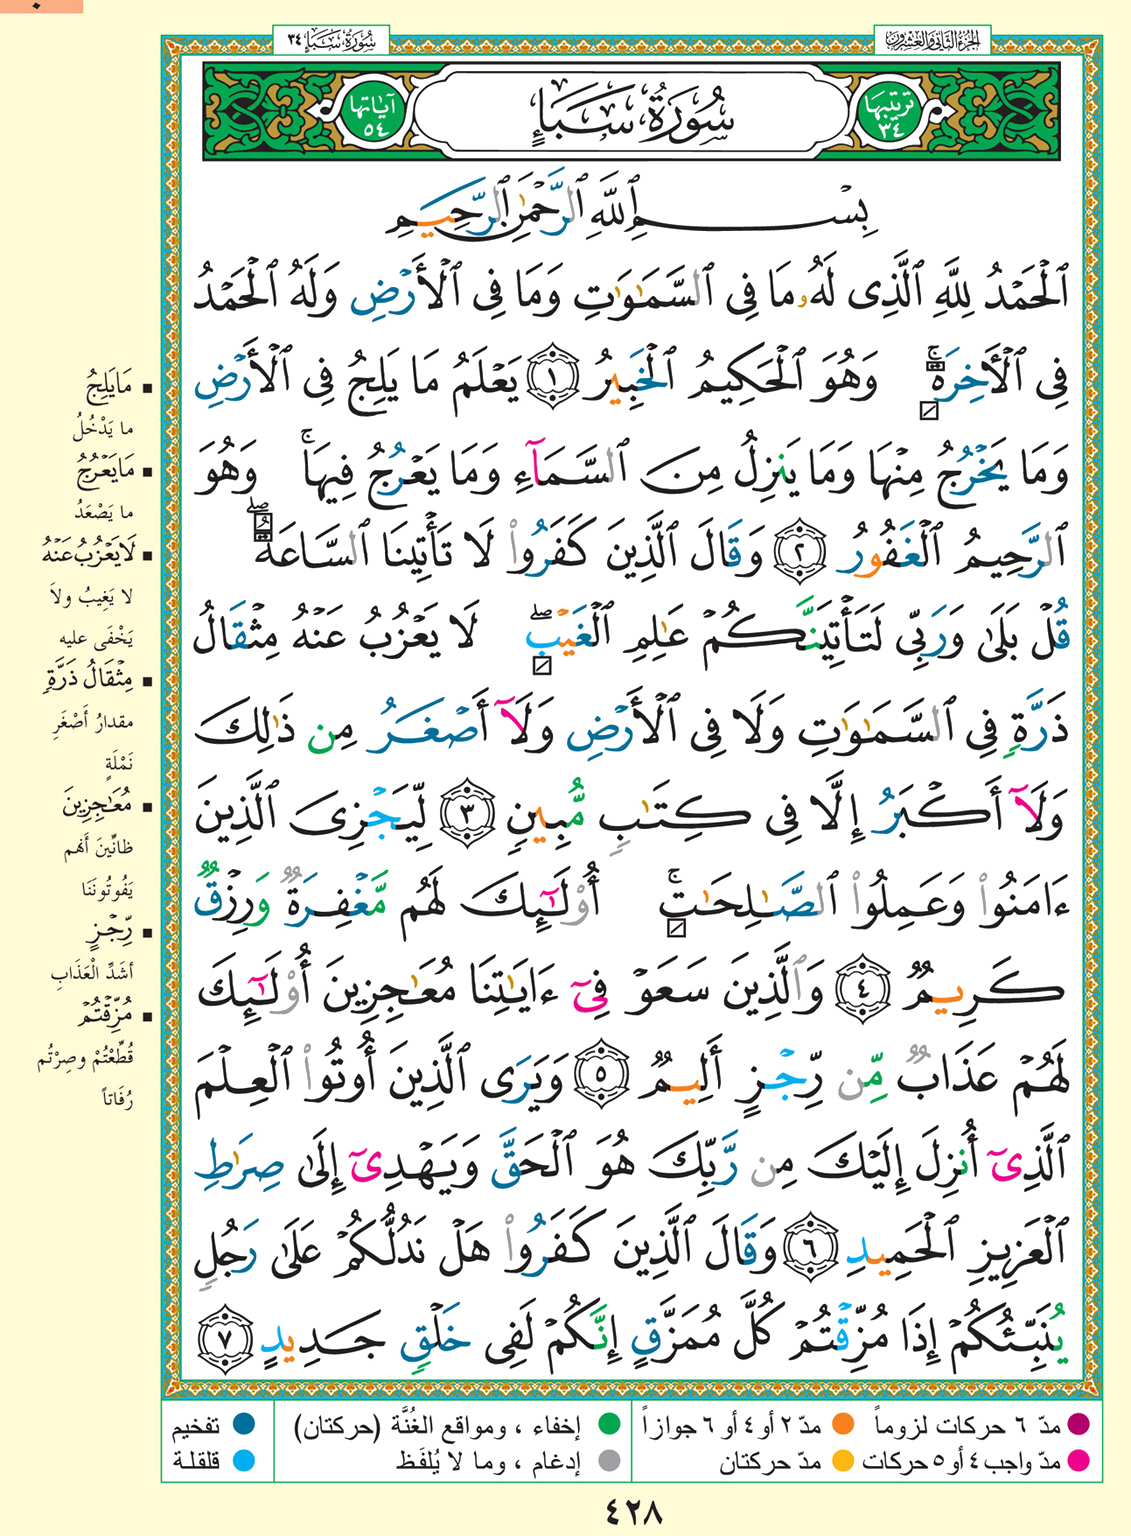 الجزء الثاني والعشرون
سُورَةُ سَبَإٍ ٣٤
ترتيبها ٣٤
سُورَةُ سَبَإٍ
آياتها ٥٤
بِسْمِ ٱللَّهِ ٱلرَّحْمَٰنِ ٱلرَّحِيمِ
ٱلْحَمْدُ لِلَّهِ ٱلَّذِى لَهُۥ مَا فِى ٱلسَّمَٰوَٰتِ وَمَا فِى ٱلْأَرْضِ وَلَهُ ٱلْحَمْدُ
فِى ٱلْأَخِرَةِ ۚ وَهُوَ ٱلْحَكِيمُ ٱلْخَبِيرُ ١ يَعْلَمُ مَا يَلِجُ فِى ٱلْأَرْضِ
وَمَا يَخْرُجُ مِنْهَا وَمَا يَنزِلُ مِنَ ٱلسَّمَآءِ وَمَا يَعْرُجُ فِيهَا ۚ وَهُوَ
ٱلرَّحِيمُ ٱلْغَفُورُ ٢ وَقَالَ ٱلَّذِينَ كَفَرُوا۟ لَا تَأْتِينَا ٱلسَّاعَةُ ۖ
قُلْ بَلَىٰ وَرَبِّى لَتَأْتِيَنَّكُمْ عَٰلِمِ ٱلْغَيْبِ ۖ لَا يَعْزُبُ عَنْهُ مِثْقَالُ
ذَرَّةٍ فِى ٱلسَّمَٰوَٰتِ وَلَا فِى ٱلْأَرْضِ وَلَآ أَصْغَرُ مِن ذَٰلِكَ
وَلَآ أَكْبَرُ إِلَّا فِى كِتَٰبٍ مُّبِينٍ ٣ لِّيَجْزِىَ ٱلَّذِينَ
ءَامَنُوا۟ وَعَمِلُوا۟ ٱلصَّٰلِحَٰتِ ۚ أُو۟لَٰٓئِكَ لَهُم مَّغْفِرَةٌ وَرِزْقٌ
كَرِيمٌ ٤ وَٱلَّذِينَ سَعَوْ فِىٓ ءَايَٰتِنَا مُعَٰجِزِينَ أُو۟لَٰٓئِكَ
لَهُمْ عَذَابٌ مِّن رِّجْزٍ أَلِيمٌ ٥ وَيَرَى ٱلَّذِينَ أُوتُوا۟ ٱلْعِلْمَ
ٱلَّذِىٓ أُنزِلَ إِلَيْكَ مِن رَّبِّكَ هُوَ ٱلْحَقَّ وَيَهْدِىٓ إِلَىٰ صِرَٰطِ
ٱلْعَزِيزِ ٱلْحَمِيدِ ٦ وَقَالَ ٱلَّذِينَ كَفَرُوا۟ هَلْ نَدُلُّكُمْ عَلَىٰ رَجُلٍ
يُنَبِّئُكُمْ إِذَا مُزِّقْتُمْ كُلَّ مُمَزَّقٍ إِنَّكُمْ لَفِى خَلْقٍ جَدِيدٍ ٧
■ مَا يَلِجُ
ما يَدْخُلُ
■ مَا يَعْرُجُ
ما يَصْعَدُ
■ لَا يَعْزُبُ عَنْهُ
لا يَغِيبُ ولاَ
يَخْفَى عليه
■ مِثْقَالُ ذَرَّةٍ
مقدارُ أَصْغَرِ
نَمْلَةٍ
■ مُعَٰجِزِينَ
ظانِّينَ أنهم
يَفُوتُونَنَا
■ رِّجْزٍ
أشَدِّ الْعَذَابِ
■ مُزِّقْتُمْ
قُطِّعْتُمْ وصِرْتُم
رُفَاتاً
مدّ ٦ حركات لزوماً
مدّ ٢ أو ٤ أو ٦ جوازاً
إخفاء ، ومواقع الغُنَّة (حركتان)
تفخيم
مدّ واجب ٤ أو ٥ حركات
مدّ حركتان
إدغام ، وما لا يُلفَظ
قلقلة
٤٢٨